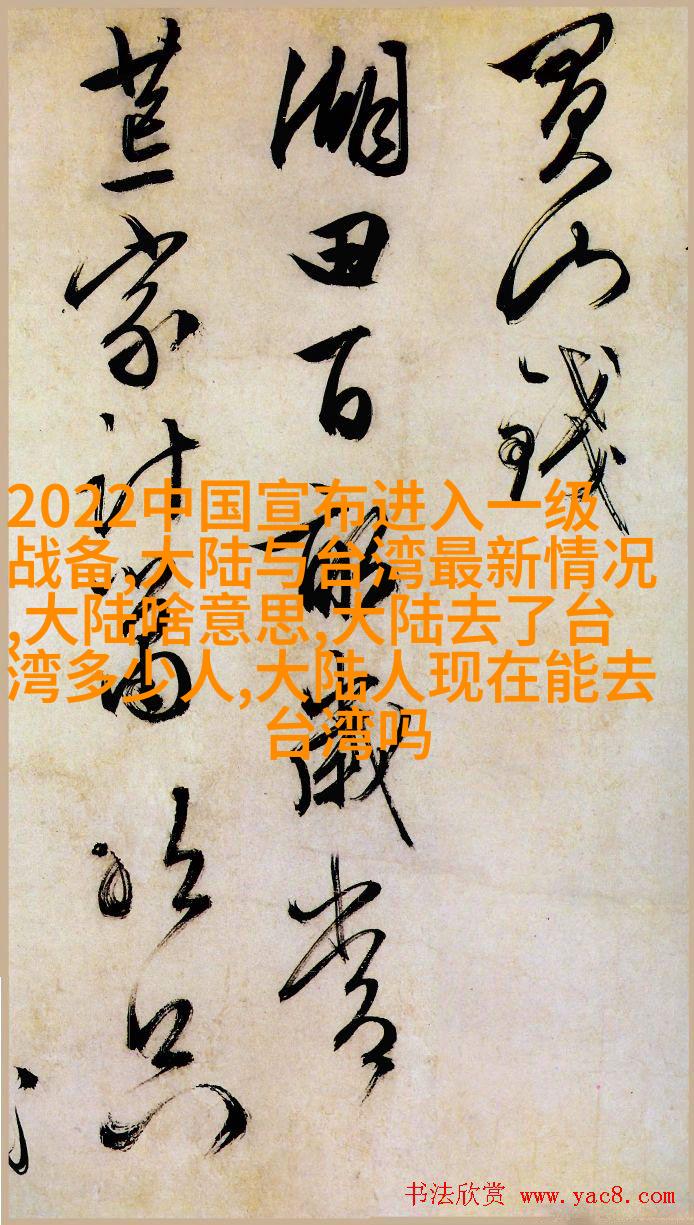 買山錢
湖田百畝歲常
荒家計只
2022中国宣布进入一级
战备,大陆与台湾最新情况
,大陆啥意思,大陆去了台
湾多少人,大陆人现在能去
台湾吗
书法欣赏 www.yac8.com